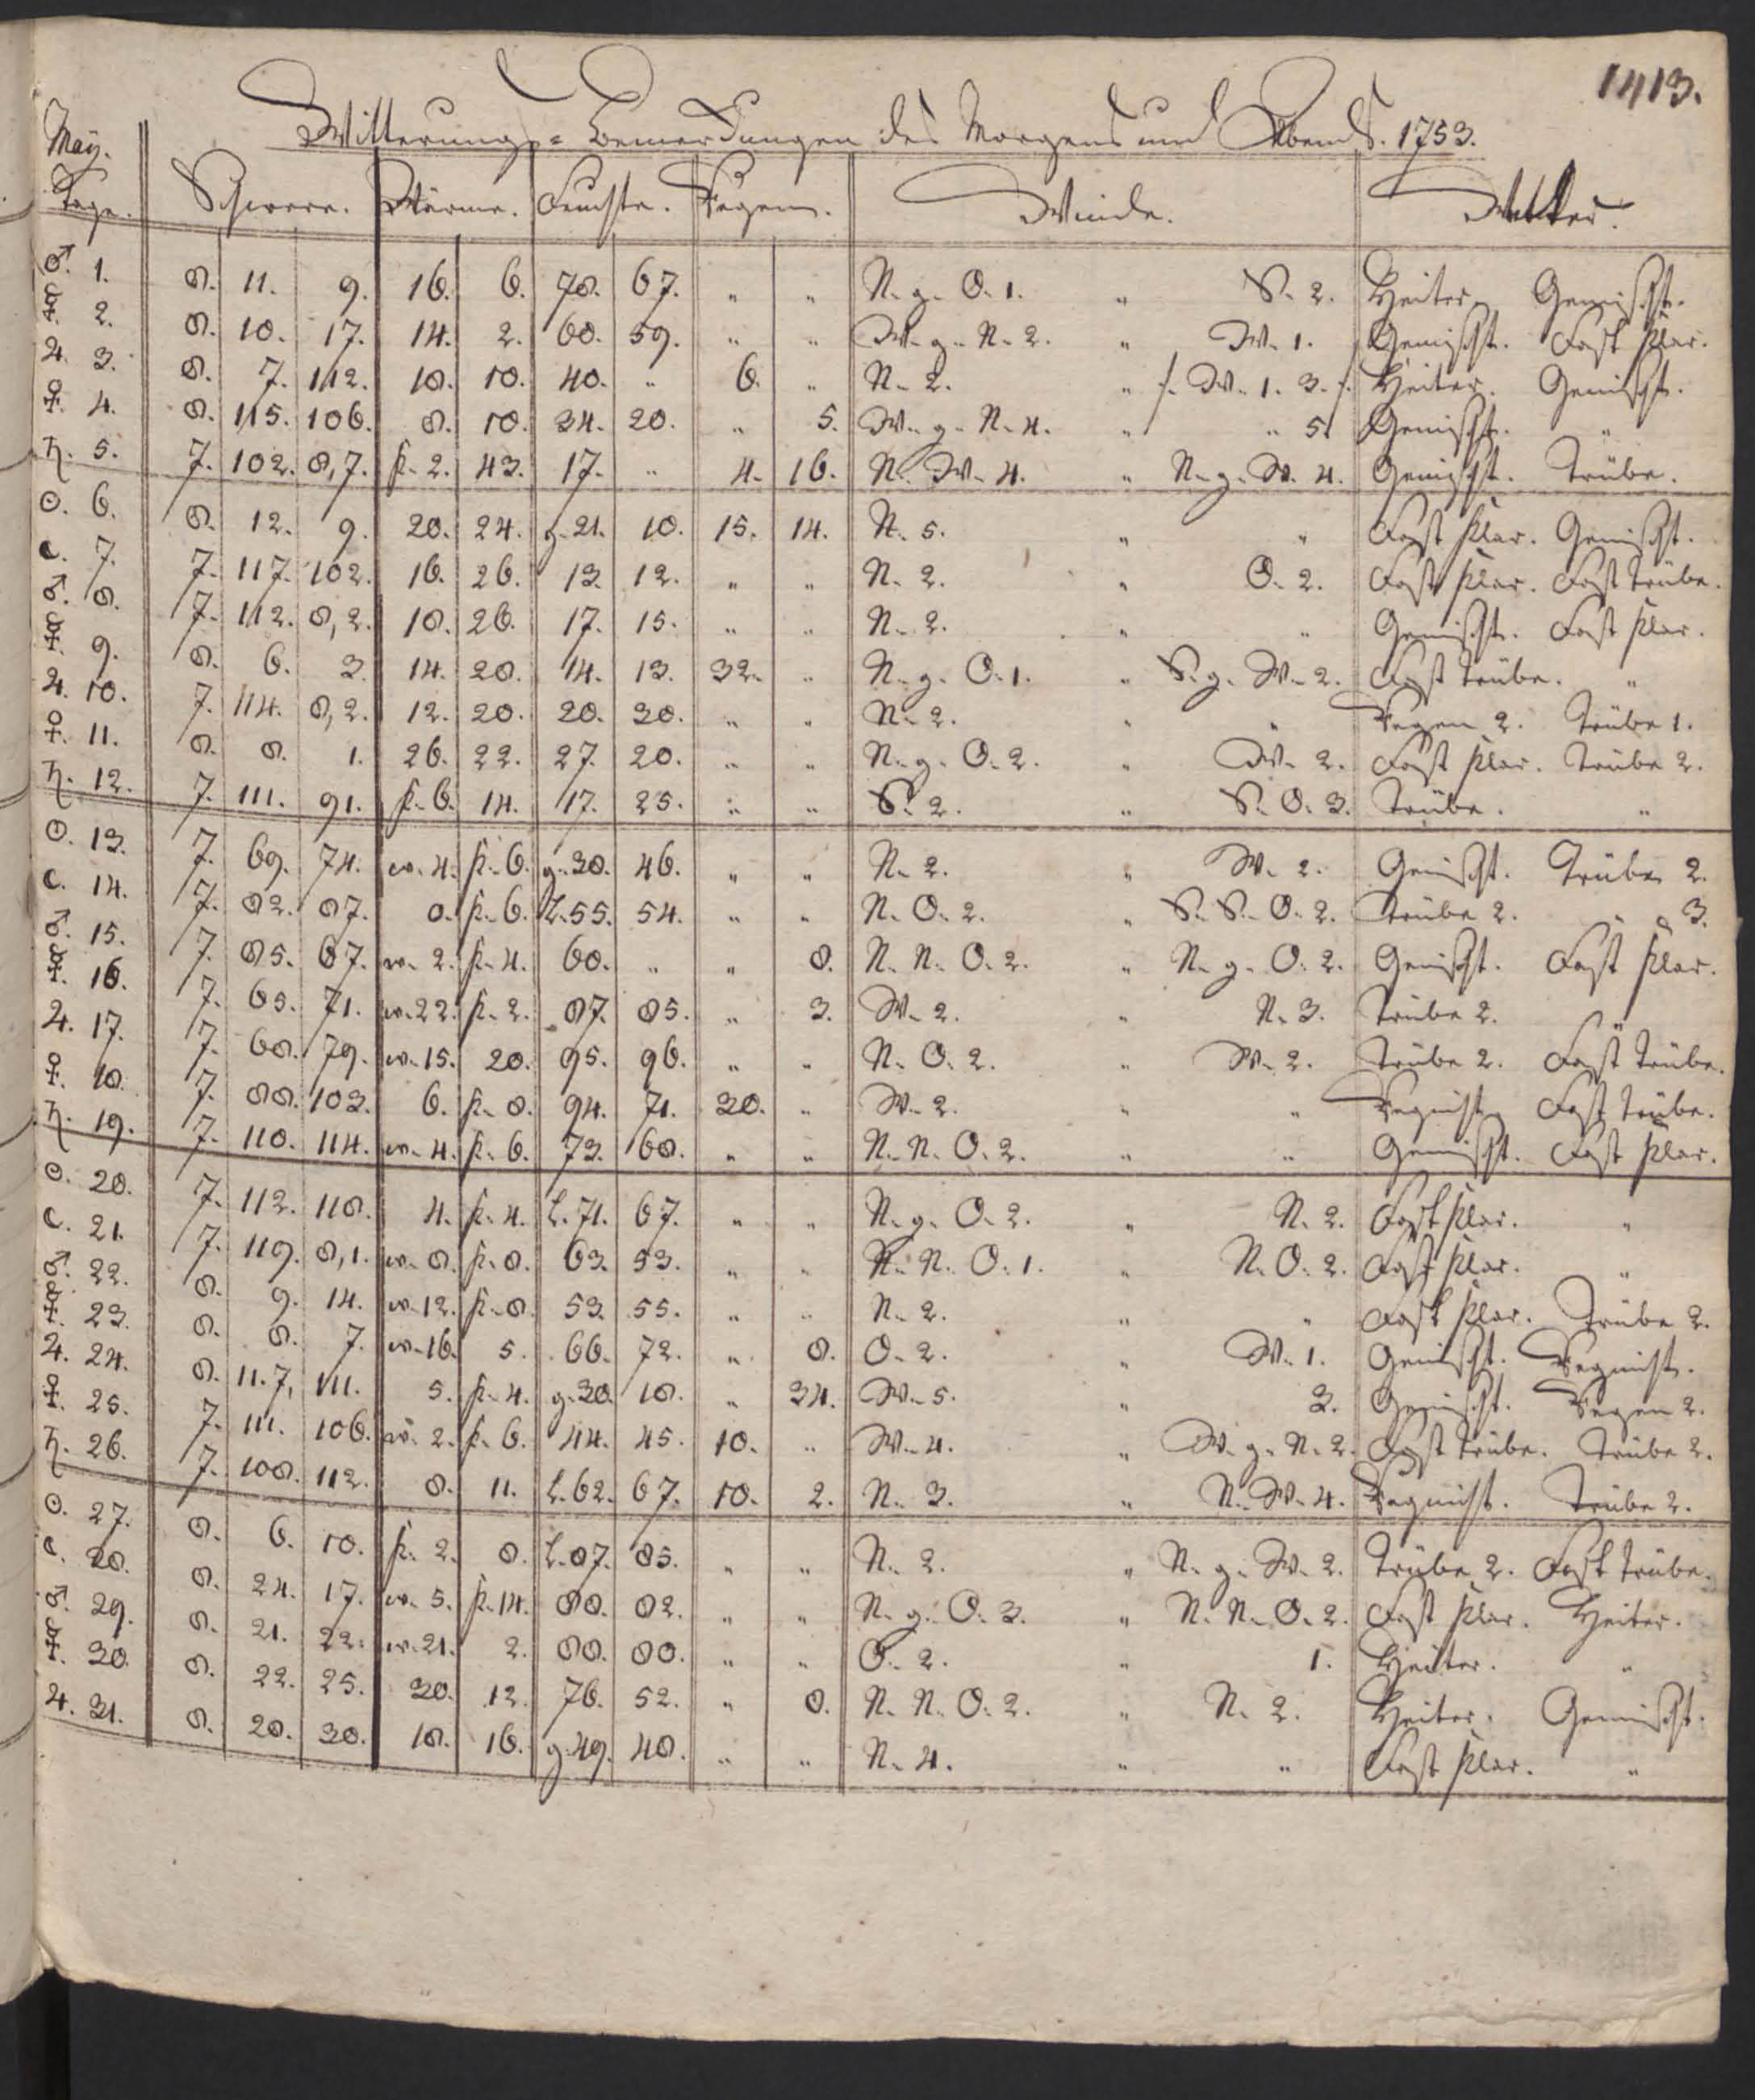 1413.
Witterungs-Bemerckungen des Morgens und Abends. 1753.
May.
Tage. Schwere. Wärme. Feuchte. Regen. Winde. Wetter.
♂. 1. 8. 11. 9. 16. 6. 78. 67. „ „ N. g. O. 1. „ S. 2. Heiter. Gemischt.
☿. 2. 8. 10. 17. 14. 2. 60. 59. „ „ W. g. N. 2. „ W. 1. Gemischt. Fast klar.
♃. 3. 8. 7. 112. 18. 10. 40. „ 6. „ N. 2. „ /. W. 1. 3. /. Heiter. Gemischt.
♀. 4. 8. 115. 106. 8. 10. 34. 20. „ 5. W. g. N. 4. „ „ 5. Gemischt. „
♄. 5. 7. 102. 8,7. k. 2. 43. 17. „ 4. 16. N. W. 4. „ N. g. W. 4. Gemischt. Trübe.
☉. 6. 8. 12. 9. 20. 24. g. 21. 18. 15. 14. N. 5. „ „ Fast klar. Gemischt.
☾. 7. 7. 117. 102. 16. 26. 13. 12. „ „ N. 2. „ O. 2. Fast klar. Fast trübe.
♂. 8. 7. 112. 8,2. 18. 26. 17. 15. „ „ N. 2. „ „ Gemischt. Fast klar.
☿. 9. 8. 6. 3. 14. 28. 14. 13. 32. „ N. g. O. 1. „ S. g. W. 2. Fast trübe. „
♃. 10. 7. 114. 8,2. 12. 20. 20. 30. „ „ N. 2. „ „ Regen 2. Trübe 1.
♀. 11. 8. 8. 1. 26. 22. 27. 20. „ „ N. g. O. 2. „ W. 2. Fast klar. Trübe 2.
♄. 12. 7. 111. 91. k. 6. 14. 17. 25. „ „ S. 2. „ S. O. 3. Trübe. „
☉. 13. 7. 69. 74. w. 4. k. 6. g. 30. 46. „ „ N. 2. „ W. 2. Gemischt. Trübe 2.
☾. 14. 7. 82. 87. 0. k. 6. L. 55. 54. „ „ N. O. 2. „ S. S. O. 2. Trübe 2. „ 3.
♂. 15. 7. 85. 67. w. 2. k. 4. 60. „ „ 8. N. N. O. 2. „ N. g. O. 2. Gemischt. Fast klar.
☿. 16. 7. 65. 71. w. 22. k. 2. 87. 85. „ 3. W. 2. „ N. 3. Trübe 2. „
♃. 17. 7. 68. 79. w. 15. 20. 95. 96. „ „ N. O. 2. „ W. 2. Trübe 2. Fast trübe.
♀. 18. 7. 88. 103. 6. k. 8. 94. 71. 30. „ W. 2. „ „ Regnicht. Fast trübe.
♄. 19. 7. 110. 114. w. 4. k. 6. 73. 68. „ „ N. N. O. 2. „ „ Gemischt. Fast klar.
☉. 20. 7. 112. 118. 4. k. 4. L. 71. 67. „ „ N. g. O. 2. „ N. 2. Fast klar. „
☾. 21. 7. 119. 8,1. w. 8. k. 8. 63. 53. „ „ N. N. O. 1. „ N. O. 2. Fast klar. „
♂. 22. 8. 9. 14. w. 12. k. 8. 53. 55. „ „ N. 2. „ „ Fast klar. Trübe 2.
☿. 23. 8. 8. 7. w. 16. 5. 66. 72. „ 8. O. 2. „ W. 1. Gemischt. Regnicht.
♃. 24. 8. 11. 7, 111. 5. k. 4. g. 30. 18. „ 34. W. 5. „ 3. Gemischt. Regen 2.
♀. 25. 7. 111. 106. w. 2. k. 6. 44. 45. 10. „ W. 4. „ W. g. N. 2. Fast trübe. Trübe 2.
♄. 26. 7. 108. 112. 8. 11. L. 62. 67. 10. 2. N. 3. „ N. W. 4. Regnicht. Trübe 2.
☉. 27. 8. 6. 10. k. 2. 8. L. 87. 85. „ „ N. 2. „ N. g. W. 2. Trübe 2. Fast trübe.
☾. 28. 8. 24. 17. w. 5. k. 14. 80. 82. „ „ N. g. O. 3. „ N. N. O. 2. Fast klar. Heiter.
♂. 29. 8. 21. 22. w. 21. 2. 88. 80. „ „ O. 2. „ 1. Heiter. „
☿. 30. 8. 22. 25. 30. 12. 76. 52. „ 8. N. N. O. 2. „ N. 2. Heiter. Gemischt.
♃. 31. 8. 20. 30. 18. 16. g. 49. 48. „ „ N. 4. „ „ Fast klar. „